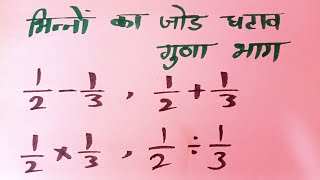 भिन्नों का जोड घटाव
गुणा भाग
1/2 - 1/3 , 1/2 + 1/3
1/2 × 1/3 , 1/2 ÷ 1/3